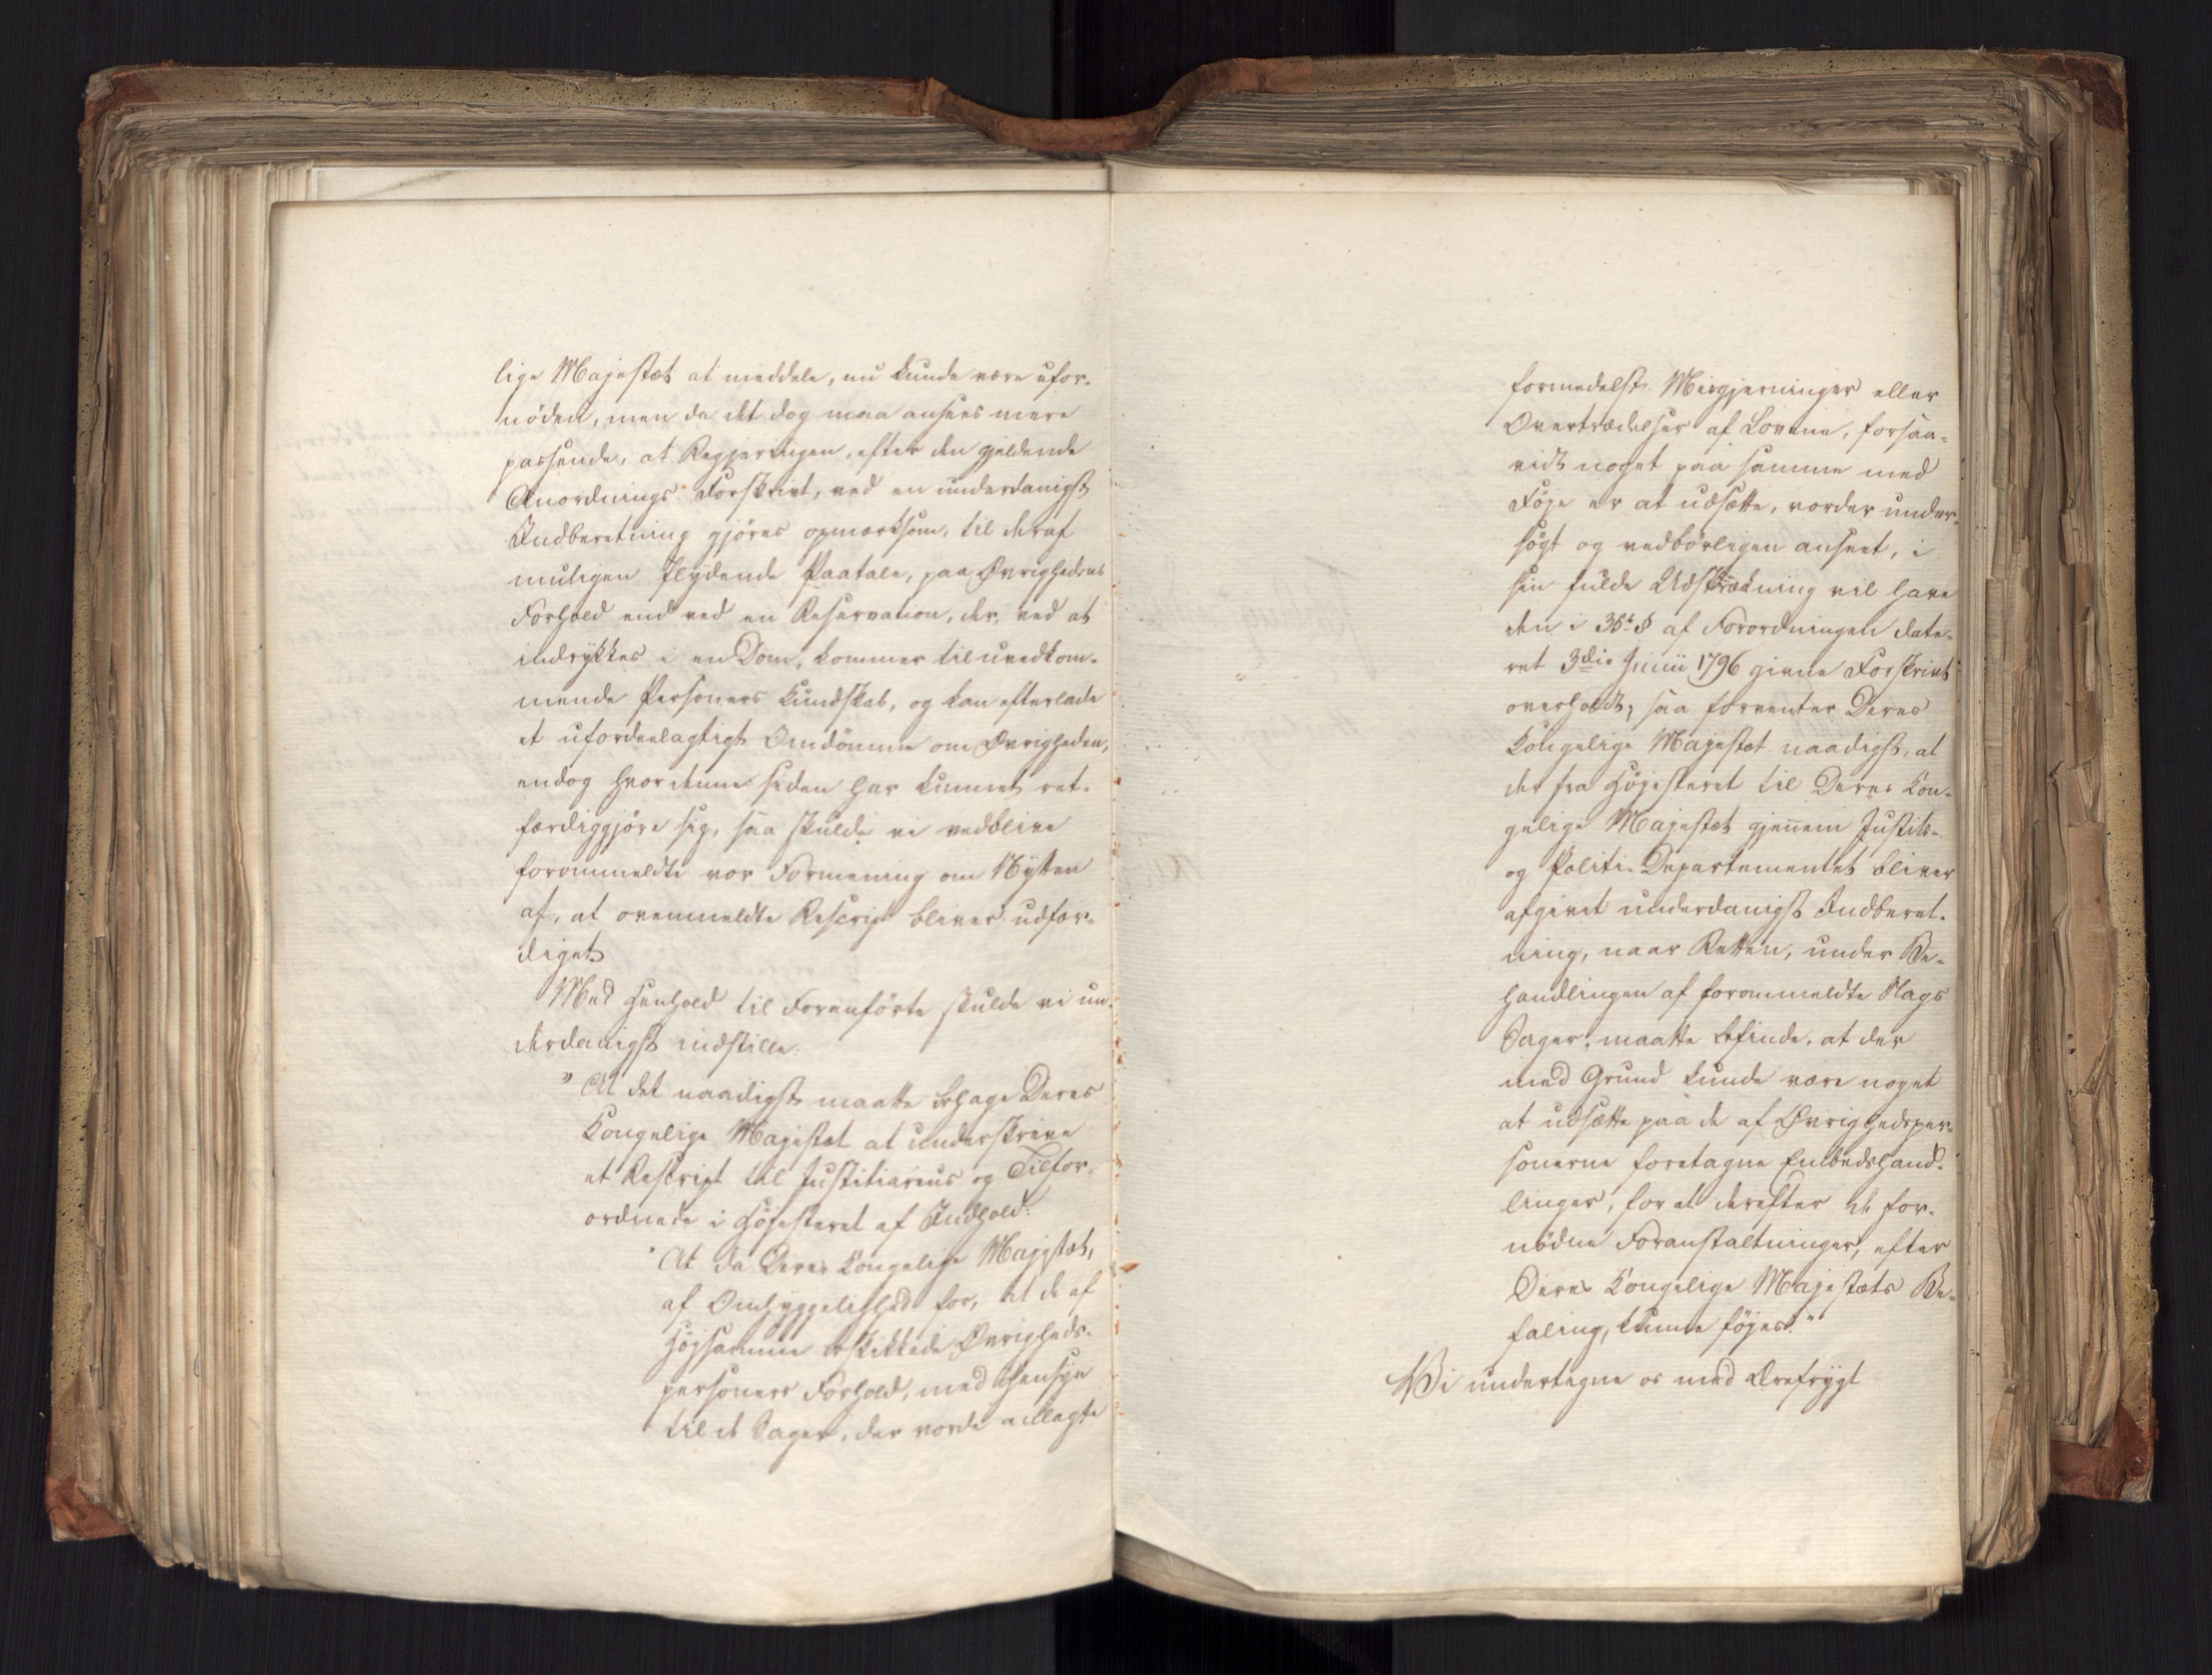 lige Majestæt at meddele, nu kunde være ufor-
nöden, men da det dog maa ansees mere
passende, at Regjeringen, efter den gjeldende
Anordnings Forskrivt, ved en underdanigst
Indberetning gjöres opmærksom, til deraf
muligen flydende Paatale, paa Øvrighedens
Forhold end ved en Reservation, der, ved at
indrykkes i en Dom, kommer til uvedkom-
mende Personers Kundskab, og kan efterlade
et ufordeelagtigt Omdömme om Øvrigheden,
endog hvor denne siden har kunnet ret-
færdiggjöre sig, saa skulde vi vedblive
forommeldte vor Formening om Nytten
af, at ovenmeldte Rescript bliver udfær-
diget
Med Henhold til Foranförte skulde vi un-
derdanigst indstille:
"At det naadigst maatte behage Deres
Kongelige Majestæt at underskrive
et Rescript til Justitiarius og Tilfor-
ordnede i Höjesteret af Indhold:
"At da Deres Kongelige Majestæt,
af Omhyggelighed for, at de af
Höjsamme beskikkede Øvrigheds-
personers Forhold, med Hensyn
til de Sager, der vorde anlagte
formedelst Misgjerninger eller
Overtrædelser af Lovene, forsaa-
vidt noget paa samme med
Föje er at udsætte, vorder under-
sögt og vedbörligen anseet, i
sin fulde Udstrækning vil have
den i 36t § af Forordningen date-
ret 3die Junii 1796 givne Forskrivt
overholdt, saa forventer Deres
Kongelige Majestæt naadigst, at
der fra Höjesteret til Deres Kon-
gelige Majestæt gjennem Justits-
og Politi-Departementet bliver
afgivet underdanigst Indberet-
ning, naar Retten, under Be-
handlingen af forommeldte Slags
Sager, maatte befinde, at der
med Grund kunde være noget
at udsætte paa de af Øvrighedsper-
sonerne foretagne Embedshand-
linger, for at derefter de for-
nödne Foranstaltninger, efter
Deres Kongelige Majestæts Be-
faling, kunne föjes."
Vi undertegne os med Ærefrygt